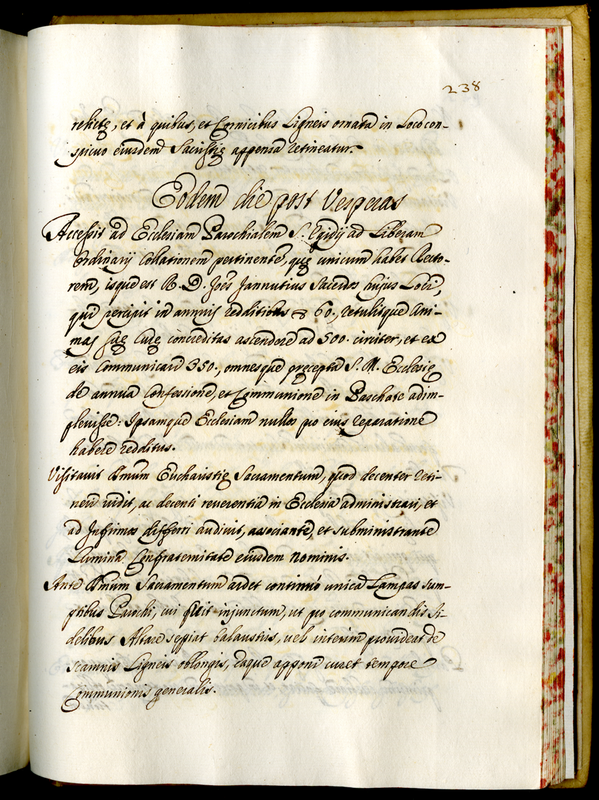 238
relictæ, et à quibus, et Cornicibus Ligneis ornata in Loco con-
spicuo eiusdem Sacristiæ appensa retineatur.
Eodem die post Vesperas
Accessit ad Ecclesiam Parochialem S. Egidij ad Liberam
Ordinarij Collationem pertinente, quæ unicum habet Recto-
rem, isque est R. D. Joes Jannutius Sacerdos hujus Loci,
qui percipit in annuis redditibus 60. retulitque Ani-
mas suæ Curæ concreditas ascendere ad 500. circiter, et ex
eis communicari 350., omnesque præcepta S. M. Ecclesiæ
de annua Confessione, et Communione in Paschate adim-
plevisse: Ipsamque Ecclesiam nullos pro eius reparatione
habere redditus.
Visitavit Sñum Eucharistiæ Sacramentum, quod decenter reti-
neri vidit, ac decenti reverentia in Ecclesia administrari, et
ad Infirmos differri audivit, associante, et subministrante
Lumina Confraternitate eiusdem nominis.
Ante Sñum Sacramentum ardet continuò unica Lampas sum-
ptibus Parochi, cui fuit injunctum, ut pro communicandis fi-
delibus Altare sepiat balaustris, vel interim provideat de
scamnis Ligneis oblongis, eaque apponi curet tempore
Communionis generalis.